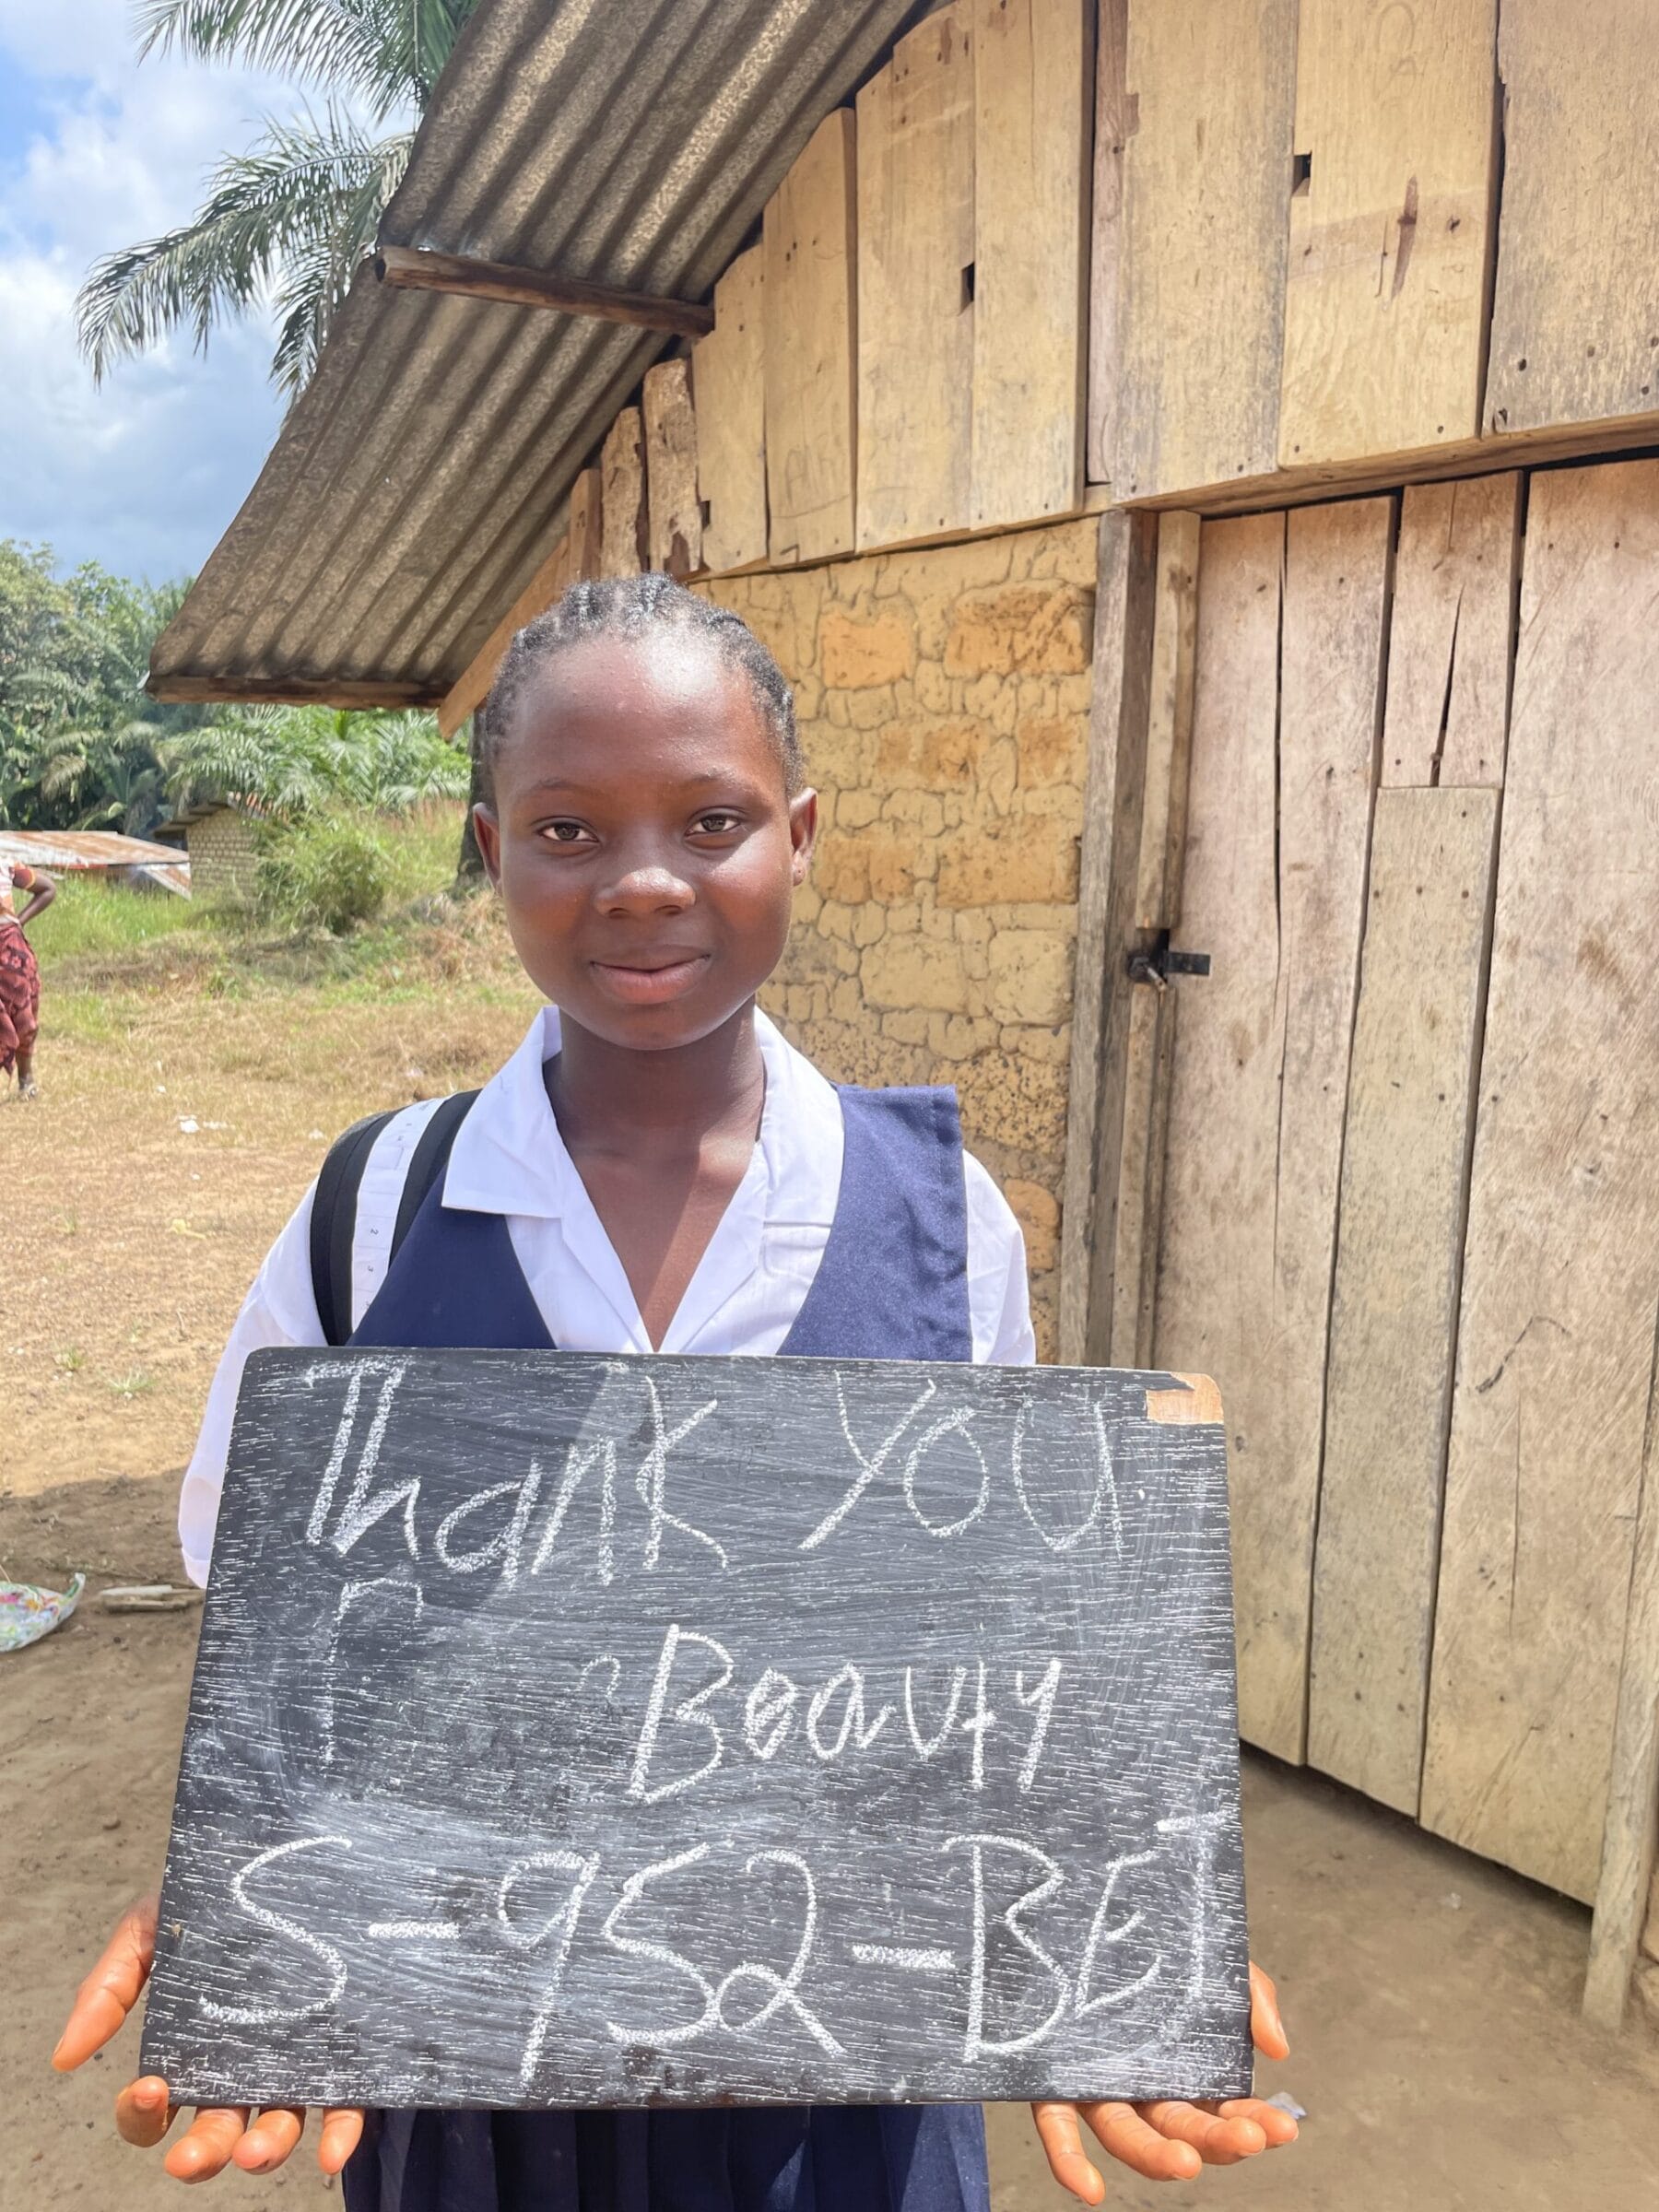 Thank You
Beauty
S-952-BET